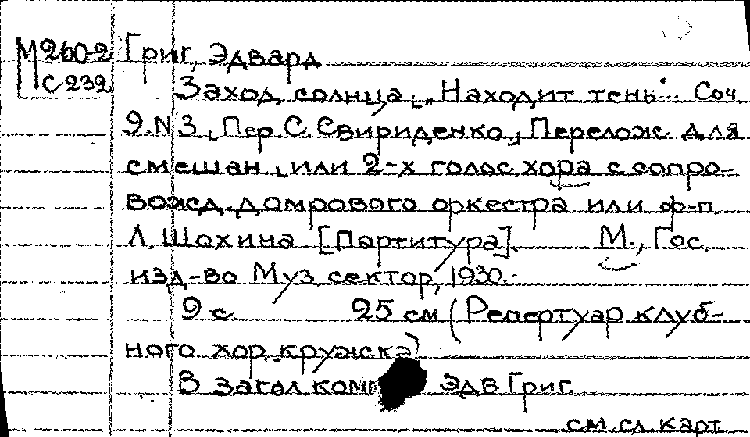 М260-2 Григ, Эдвард
С 239 Заход солнца. „Находит тень". Соч.
9. N 3. Пер. С. Свириденко. Перелож. для
смешан. или 2-х голос. хора с сопро-
вожд. домрового оркестра или ф-п.
Л. Шохина. [Партитура]. М., Гос.
изд-во Муз. сектор, 1930.
9 с. 25 см (Репертуар клуб-
ного хор. кружка)
В загол. Эдв. Григ.
см. сл. карт.